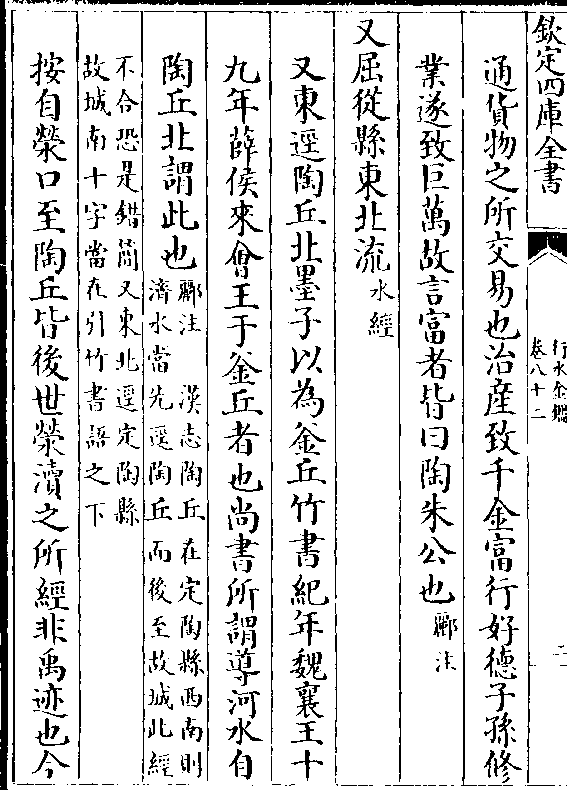 欽定四庫全書
行水金鑑
卷八十二
二
通貨物之所交易也治產致千金富行好德子孫修
業遂致巨萬故言富者皆曰陶朱公也酈注
又屈從縣東北流水經
又東逕陶丘北墨子以為釜丘竹書紀年魏襄王十
九年薛侯來會王于釜丘者也尚書所謂導河水自
陶丘北謂此也酈注 漢志陶丘在定陶縣西南則
濟水當先逕陶丘而後至故城此經
不合恐是錯簡又東北逕定陶縣
故城南十字當在引竹書語之下
按自滎口至陶丘皆後世滎瀆之所經非禹迹也今